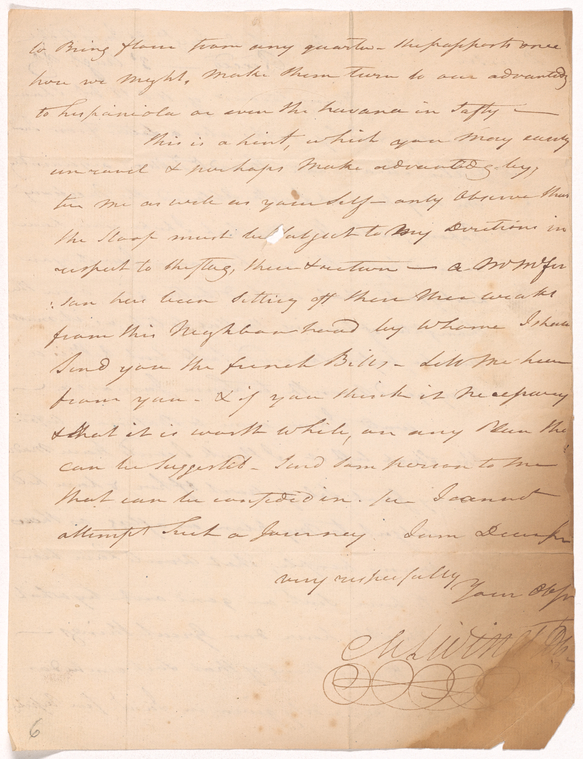 to Bring flour from any quarter - the papports once
here we might, make them turn to our advantag
to hispaniola or even the havana in Safty —
this is a hint, which you may easily
unravel & perhaps make advantadg by,
me as well as yourself - only Observe that
the Sloop must be Subject to my Directions in
respect to the flag, there & return — a Mr Mcfer
:son has been Setting off these three weaks
from this Neighbourhood by Whome I shou
Send you the french Bills - Let me hear
from you - & if you think it Necessary
& that it is worth while, on any Plan tha
can be Suggested - Send som person to me
that can be confided in. I cannot
attempt Such a Journey. I am Dear
very respectfully
Your Ob
6